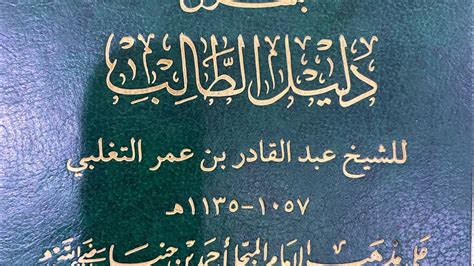 دَلِيْل الطَّالِب
للشيخ عبد القادر بن عمر التغلبي
١٠٥٧-١١٣٥هـ
عَلى مَذهَب الإمَام المبجّل أحمَد بن حنبل